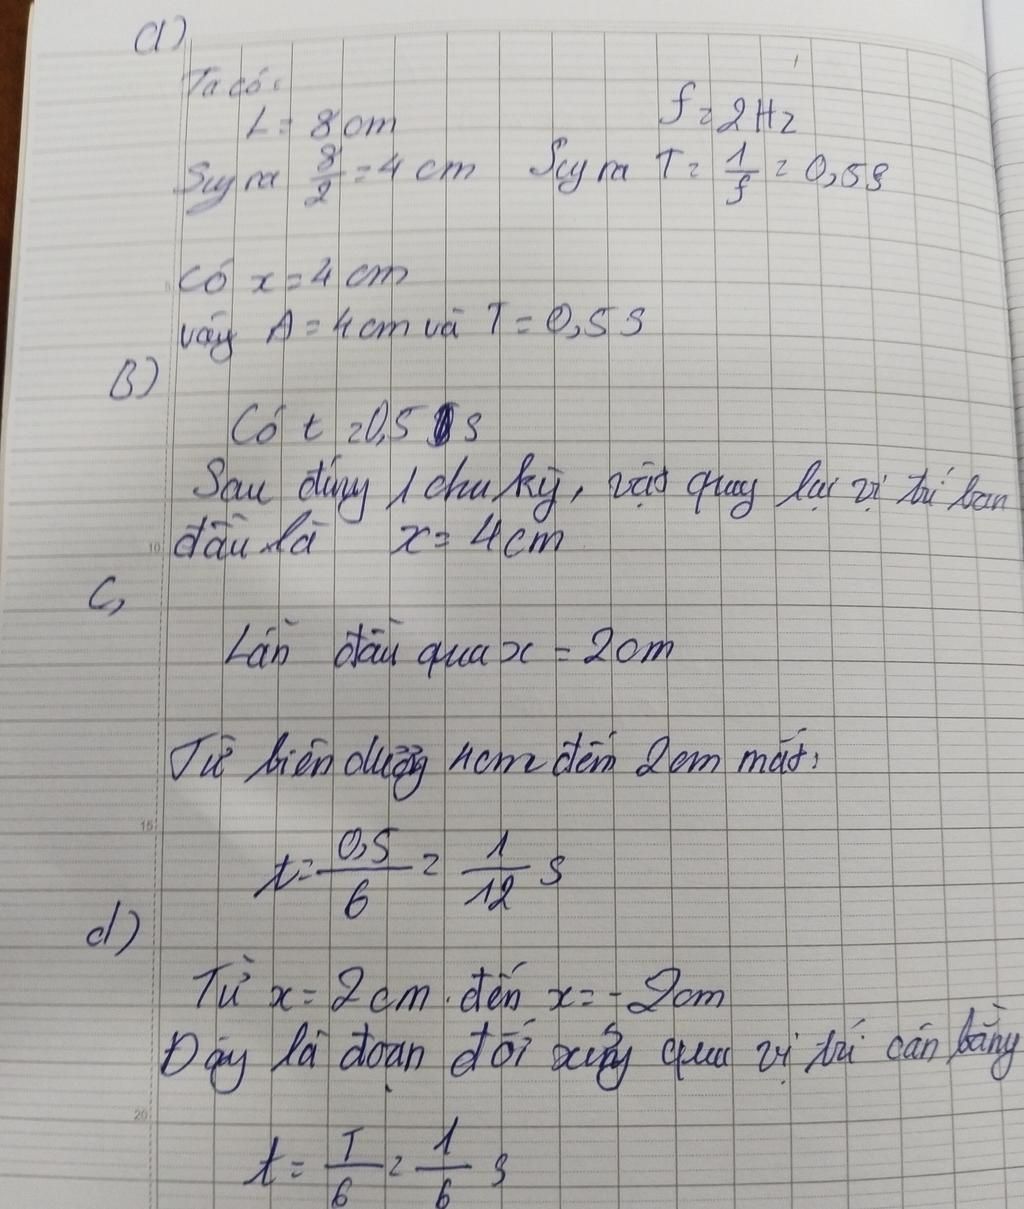 a)
Ta có:
L = 8cm
f = 2Hz
Suy ra 8/2 = 4 cm
Suy ra T = 1/f = 0,5s
Có x = 4 cm
vậy A = 4cm và T = 0,5s
B)
Có t = 0,5 s
Sau đúng 1 chu kỳ, vật quay lại vị trí ban
đầu là x = 4cm
C,
Lần đầu qua x = 2cm
Từ biên dương 4cm đến 2cm mất:
t = 0,5/6 = 1/12 s
d)
Từ x = 2cm đến x = -2cm
Đây là đoạn đối xứng qua vị trí cân bằng
t = T/6 = 1/6 s
10
15
20